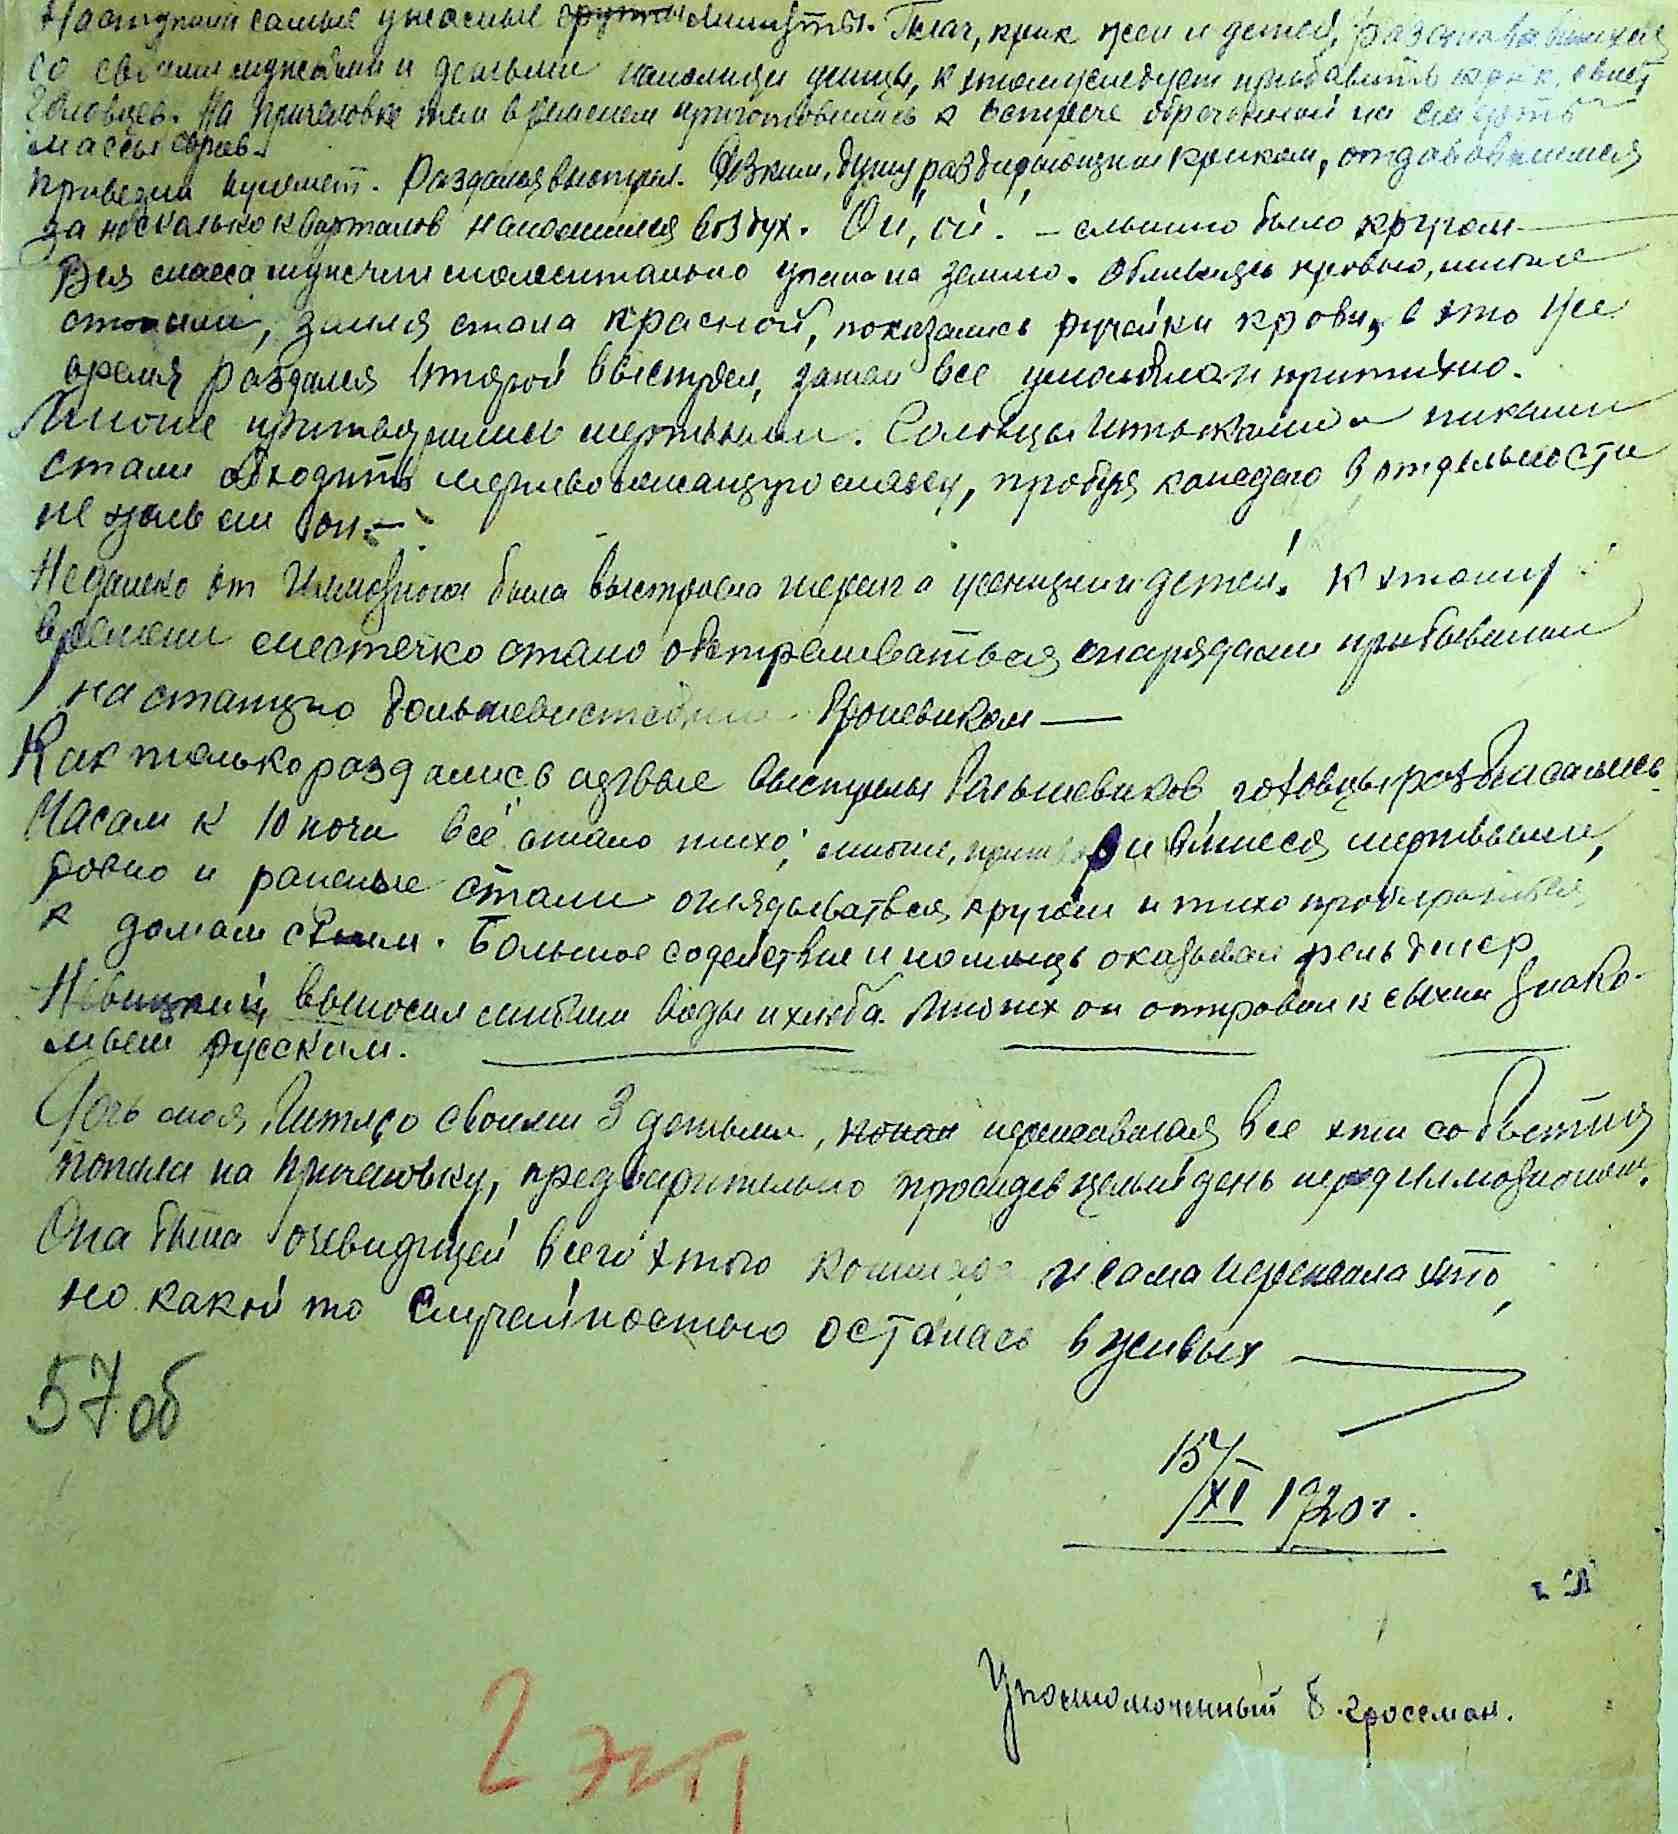 Наступили самые ужасные минуты. Плач, крик жен и детей, расстававшихся
со своими мужьями и детьми наполнил улицы, к этому следует прибавить крик, свист
На Причеповке тем временем приготовились к встрече обреченной на смерть
массы евреев.
Привезли пулемет. Раздался выстрел. Резким, душу раздирающим криком, отдававшимся
за несколько кварталов наполнился воздух. Ой, ой! — слышно было кругом —
Вся масса мужчин моментально упала на землю. Обливаясь кровью, многие
стонали, земля стала красной, показались ручейки крови, в это же
время раздался второй выстрел, затем все умолкло и притихло.
Многие притворились мертвыми. штыками и пиками
стали обходить мертво лежащую массу, пробуя каждого в отдельности
не жив ли он. —
Недалеко от Иллюзиона была выстроена шеренга женщин и детей. К этому
времени местечко стало обстреливаться снарядами прибывшим
на станцию большевистским броневиком —
Как только раздались первые выстрелы большевиков, разбежались.
Часам к 10 ночи всё стало тихо; многие, притворившиеся мертвыми,
ровно и раненые стали оглядываться кругом и тихо пробираться
к домам своим. Большое содействие и помощь оказывал
выносил многим воды и хлеба. Многих он отправил к своим знако-
мым русским.
Дочь моя, со своими 3 детьми, переживая все эти события
попала на Причеповку, предварительно просидев целый день перед иллюзионом.
Она была очевидцей всего этого кошмара и сама пережила это,
но какой то случайностью осталась в живых —
57 об
15/XI 1920 г.
Уполномоченный Б. Гроссман.